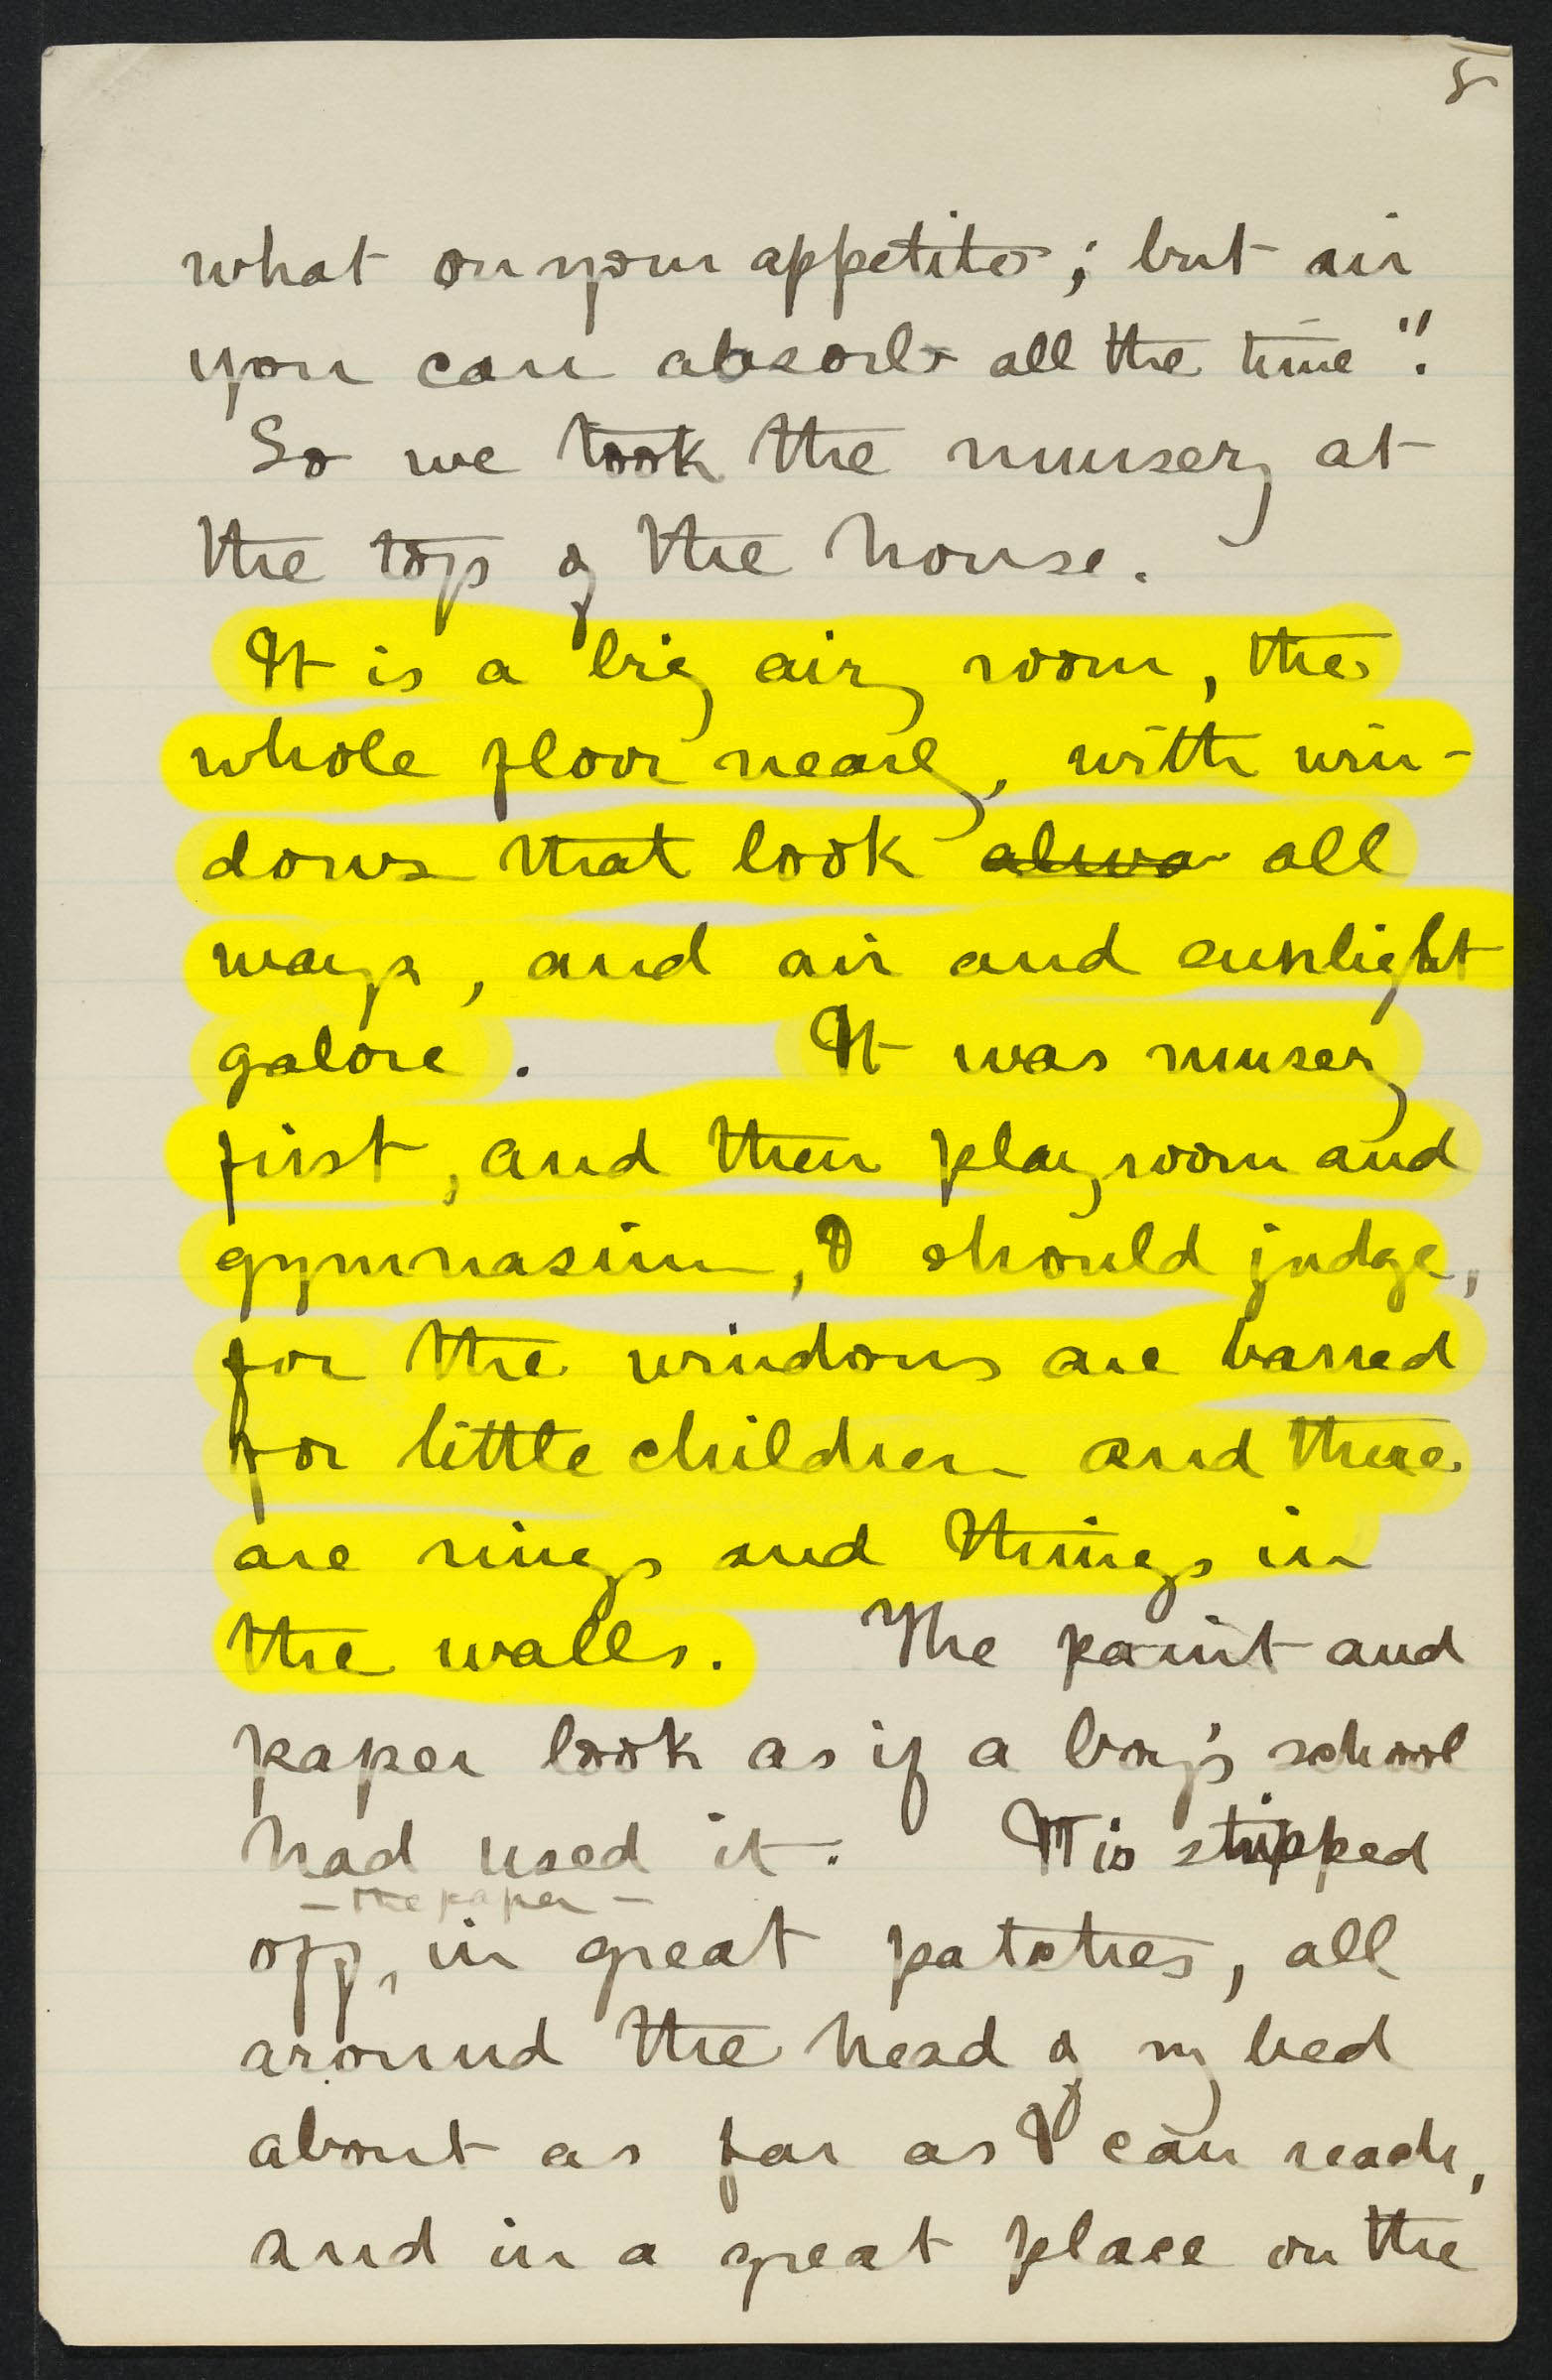 8
what on your appetite; but air
you can absorb all the time".
So we took the nursery at
the top of the house.
It is a big airy room, the
whole floor nearly, with win-
dows that look all
ways, and air and sunlight
galore. It was nursery
first, and then playroom and
gymnasium, I should judge,
for the windows are barred
for little children and there
are rings and things in
the walls. The paint and
paper look as if a boy's school
had used it. It is stripped
- the paper -
off, in great patches, all
around the head of my bed
about as far as I can reach,
and in a great place on the